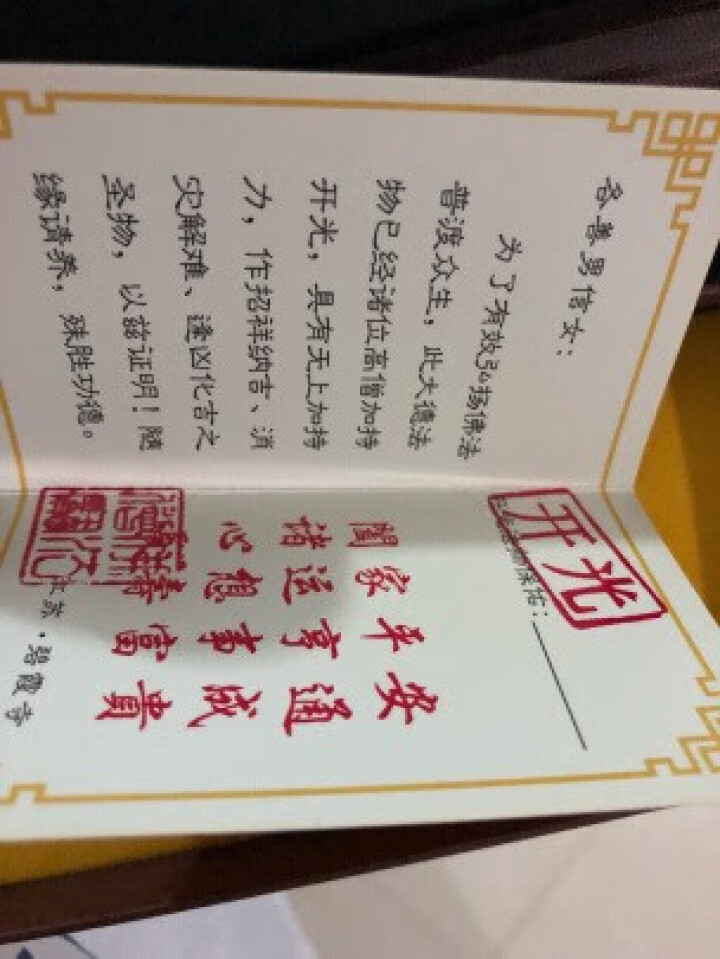 各善男信女：
为了有效弘扬佛法
普渡众生，此大德法
物已经诸位高僧加持
开光，具有无上加持
力，作招祥纳吉、消
灾解难、逢凶化吉之
圣物，以兹证明！随
缘请养，殊胜功德。
开光
保佑：
阖家平安
诸运亨通
心想事成
富貴
江苏·碧霞寺